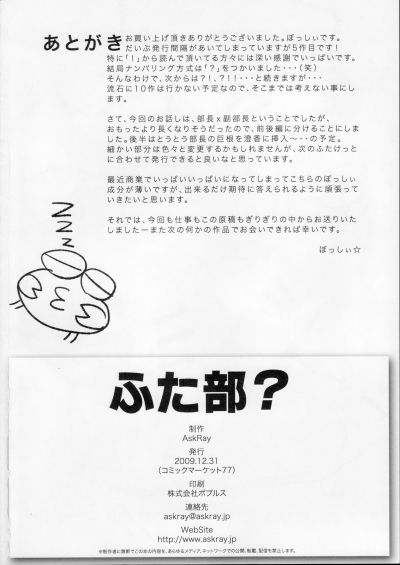 あとがき
お買い上げ頂きありがとうございました。ぽっしぃです。
だいぶ発行間隔があいてしまっていますが5作目です!
特に「!」から読んで頂いてる方々には深い感謝でいっぱいです。
結局ナンバリング方式は「?」をつかいました・・・(笑)
そんなわけで、次からは?!、?!!・・・と続きますが・・・
流石に10作は行かない予定なので、そこまでは考えない事にし
ます。
さて、今回のお話しは、部長x副部長ということでしたが、
おもったより長くなりそうだったので、前後編に分けることにしま
した。後半はとうとう部長の巨根を澄香に挿入~・・の予定。
細かい部分は色々と変更するかもしれませんが、次のふたけっと
に合わせて発行できると良いなと思っています。
最近商業でいっぱいいっぱいになってしまってこちらのぽっしぃ
成分が薄いですが、出来るだけ期待に答えられるように頑張って
いきたいと思います。
それでは、今回も仕事もこの原稿もぎりぎりの中からお送りいた
しましたーまた次の何かの作品でお会いできれば幸いです。
ぽっしぃ☆
NNNN
ふた部?
制作
AskRay
発行
2009.12.31
(コミックマーケット77)
印刷
株式会社ポプルス
連絡先
askray@askray.jp
WebSite
http://www.askray.jp
※制作者に無断でこの本の内容を、あらゆるメディア、ネットワークでの公開、転載、配信を禁止します。